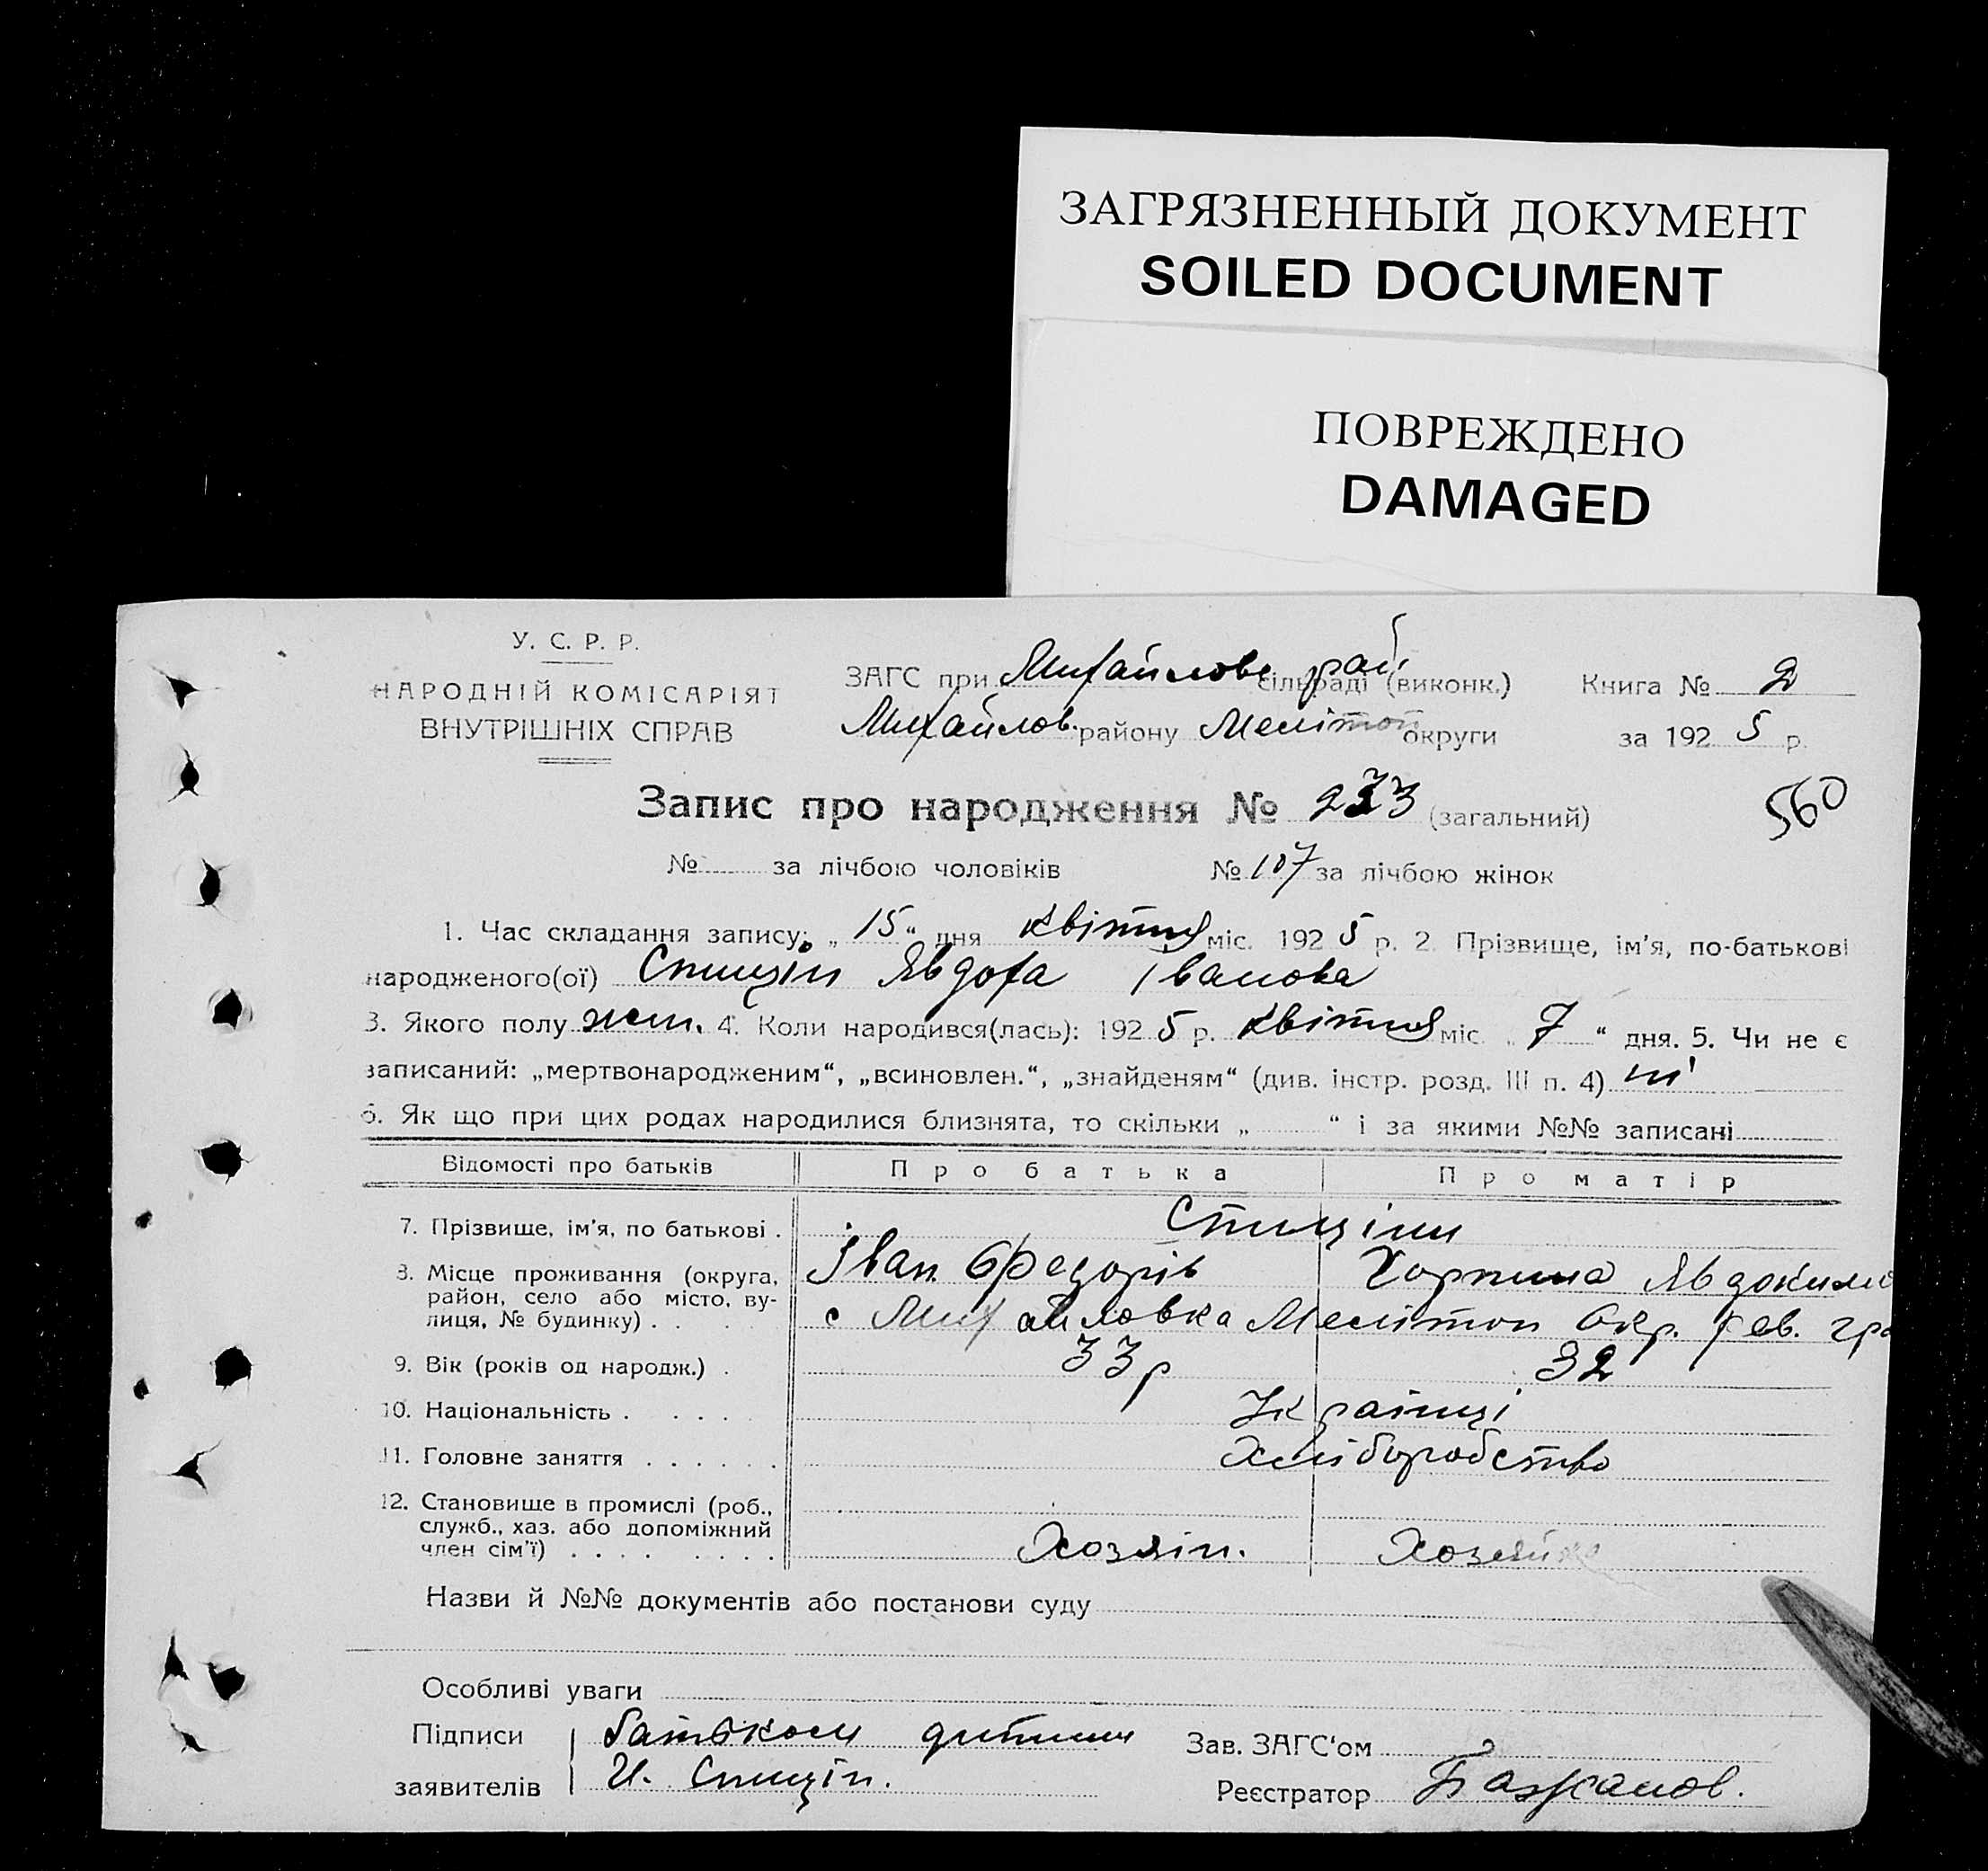 ЗАГРЯЗНЕННЫЙ ДОКУМЕНТ
SOILED DOCUMENT
ПОВРЕЖДЕНО
DAMAGED
У. С. Р. Р.
НАРОДНІЙ КОМІСАРІЯТ
ВНУТРІШНІХ СПРАВ
ЗАГС при Михайлове сільраді рай (виконк.) Книга № 2
Михайлов. району Мелітоп округи за 192 5 р.
Запис про народження № 233 (загальний)
560
№ за лічбою чоловіків № 107 за лічбою жінок
1. Час складання запису: „ 15 “ дня квітня міс. 192 5 р. 2. Прізвище, ім'я, по-батькові
народженого(ої) Спицін Явдоха Іванова
3. Якого полу жен. 4. Коли народився(лась): 192 5 р. квітня міс. „ 7 “ дня. 5. Чи не є
записаний: „мертвонародженим“, „всиновлен.“, „знайденям“ (див. інстр. розд. III п. 4) ні
6. Як що при цих родах народилися близнята, то скільки „ “ і за якими №№ записані
Відомості про батьків Про батька Про матір
7. Прізвище, ім'я, по батькові . Спиціни
Іван Федорів Хорпина Явдокимо
8. Місце проживання (округа,
район, село або місто, ву-
лиця, № будинку) . . с Михайловка Мелітоп Окр.
9. Вік (років од народж.) . 33 р 32
10. Національність . . . . . Українці
11. Головне заняття . . . . . . Хліборобство
12. Становище в промислі (роб.,
служб., хаз. або допоміжний
член сім'ї) . . . . . . . . Хозяін. Хозяйка
Назви й №№ документів або постанови суду
Особливі уваги
Підписи батьком дитини Зав. ЗАГС'ом
заявителів И. Спицін. Реєстратор Бажанов.